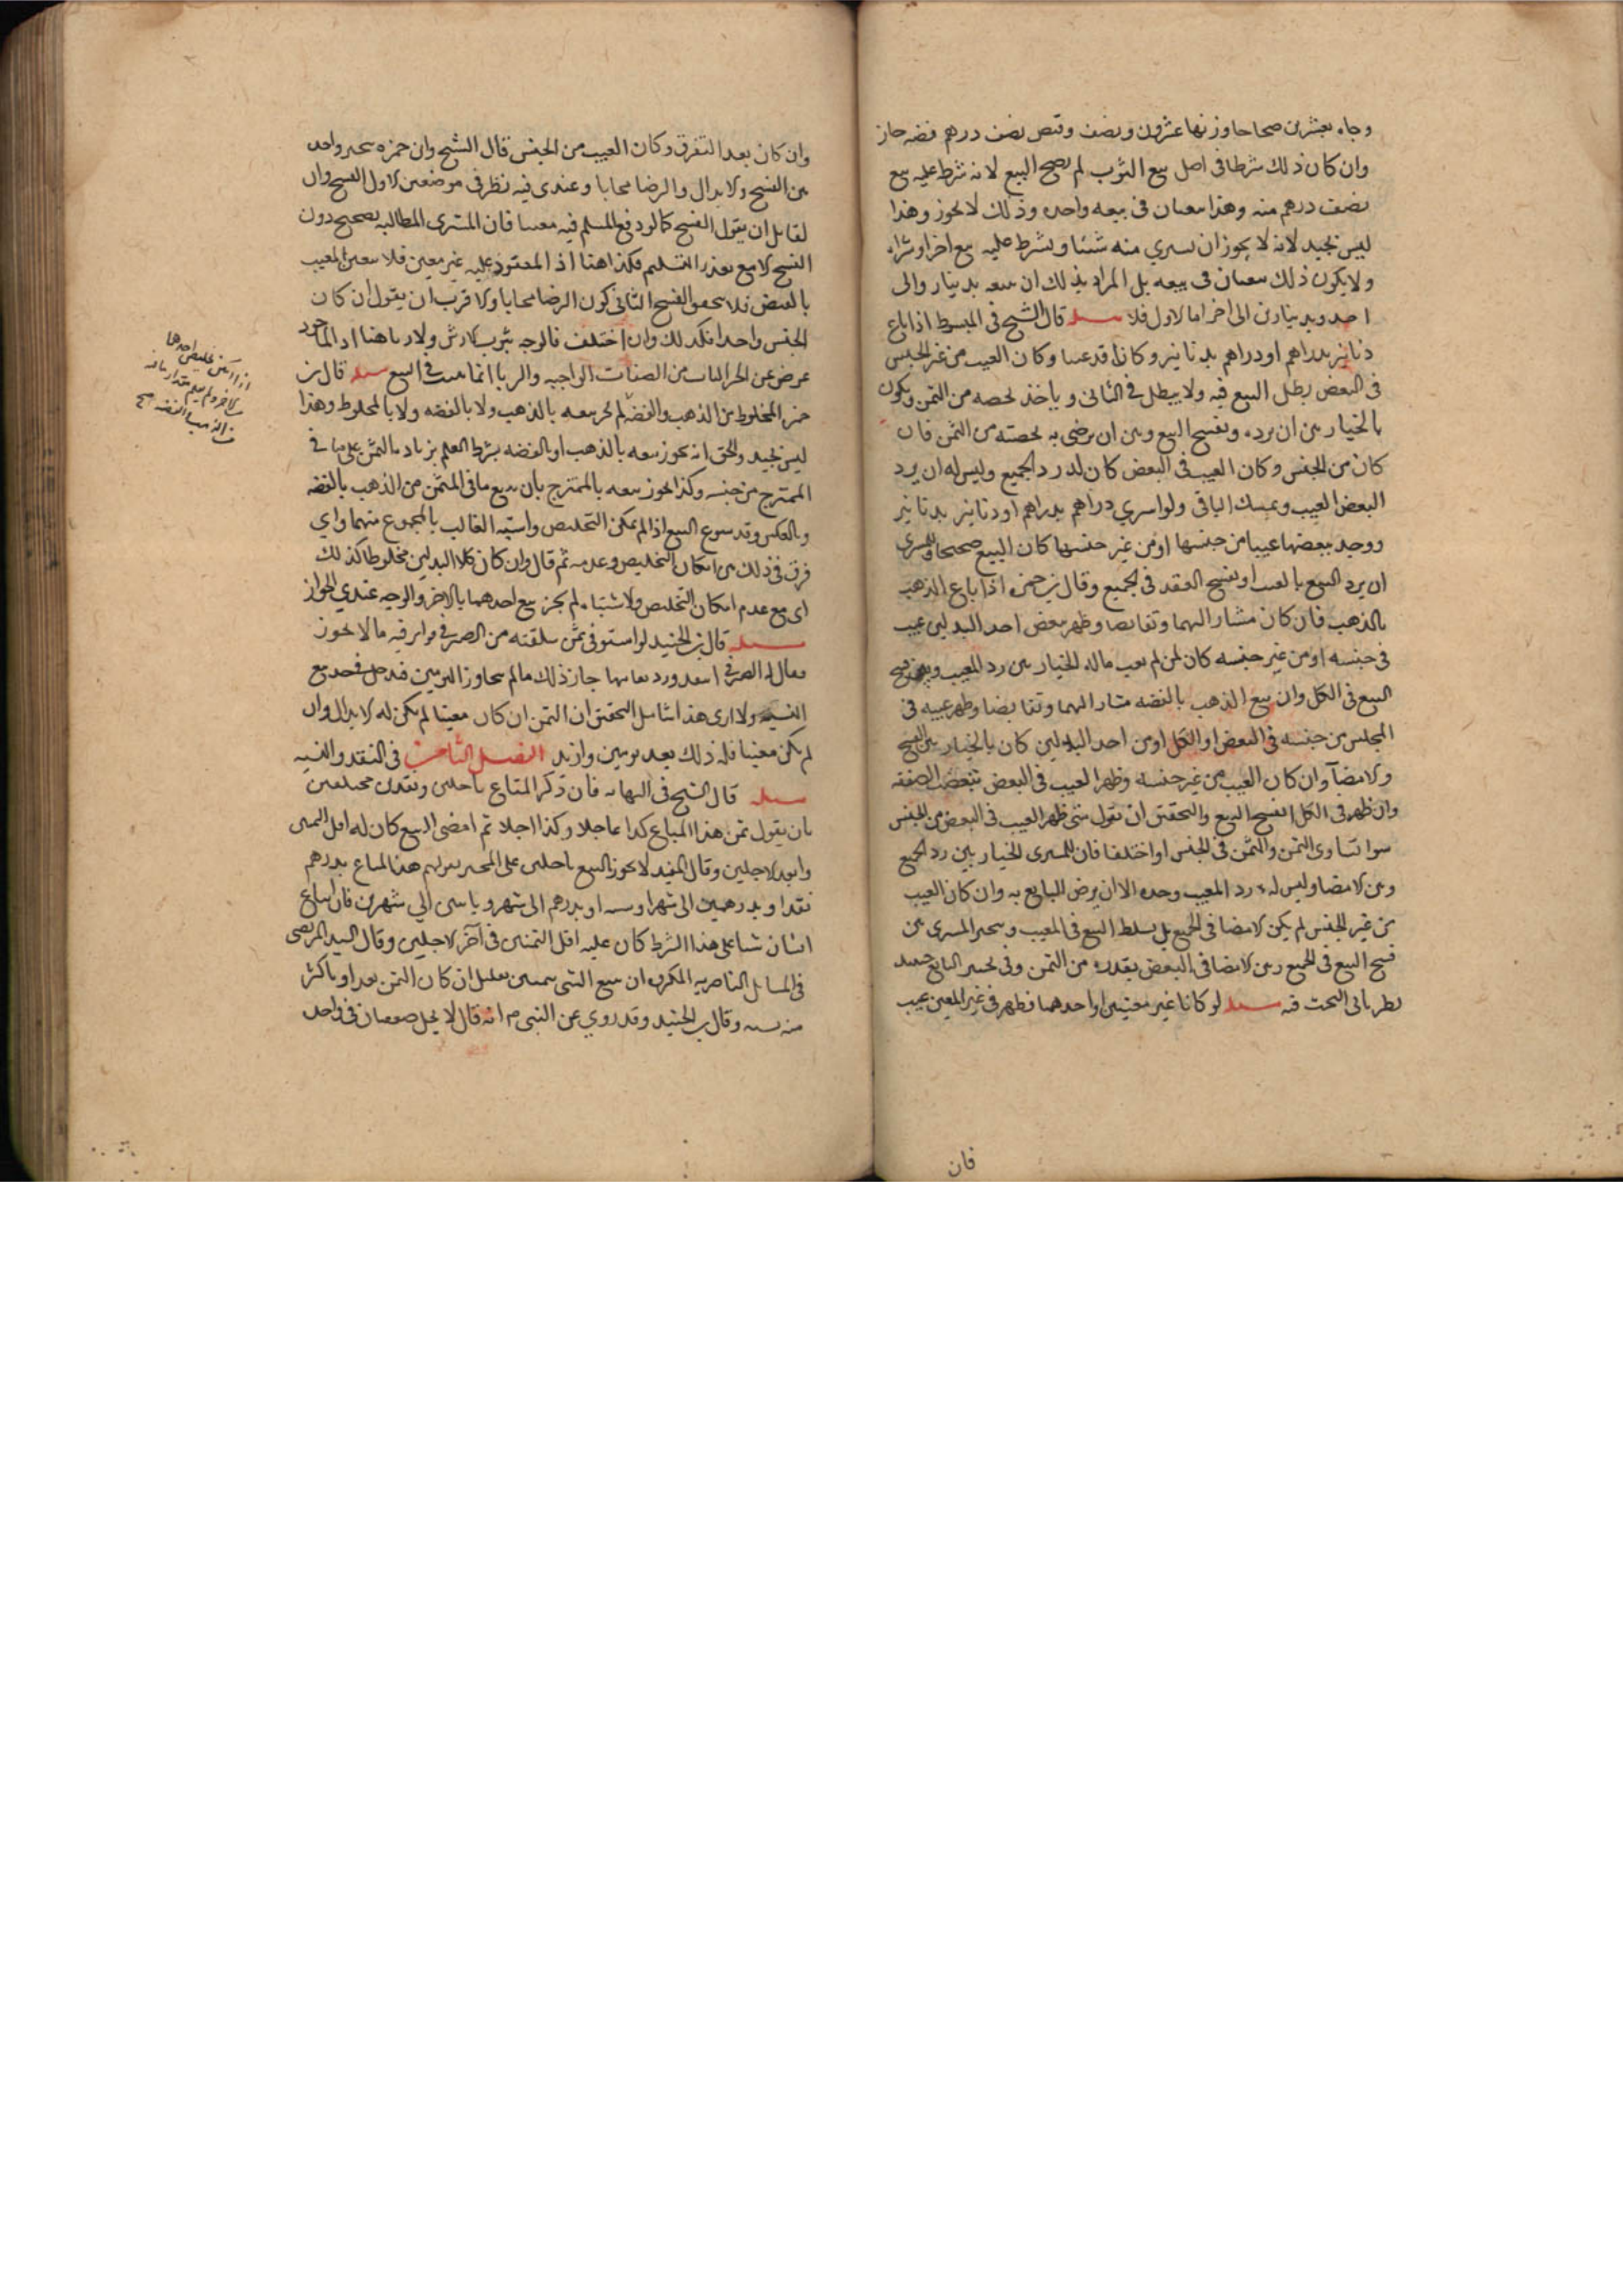 وجاء بعشرين صحاحا وزنها عشرون ونصف وقبض نصف درهم فضه جاز
وان كان ذلك شرطا فى اصل بيع الثوب لم يصح البيع لانه شرط عليه بيع
نصف درهم منه وهذا بيعتان فى بيعه واحده وذلك لا يجوز وهذا
ليس بجيد لانه لا يجوز ان يشتري منه شيئا ويشرط عليه بيع اخر او شراء
ولا يكون ذلك بيعتان فى بيعه بل المراد بذلك ان يبيعه بدينار والى
احد وبدينارين الى اخر اما الاول فلا مسئله قال الشيخ فى المبسوط اذا باع
دنانير بدراهم او دراهم بدنانير وكانا قد عينا وكان العيب من غير الجنس
فى البعض بطل البيع فيه ولا يبطل فى الثانى وياخذ بحصه من الثمن ويكون
بالخيار بين ان يرده ويفسخ البيع وبين ان يرضى به بحصته من الثمن فان
كان من الجنس وكان العيب فى البعض كان له رد الجميع وليس له ان يرد
البعض المعيب ويمسك الباقى ولو اشتري دراهم بدراهم او دنانير بدنانير
ووجد ببعضها عيبا من جنسها او من غير جنسها كان البيع صحيحا وللمشتري
ان يرد البيع بالعيب او يفسخ العقد فى الجميع وقال بن حمزه اذا باع الذهب
بالذهب فان كان مشارا اليهما وتقابضا وظهر ببعض احد البدلين عيب
فى جنسه او من غير جنسه كان لمن لم يعب ماله الخيار بين رد المعيب وبين فسخ
البيع فى الكل وان بيع الذهب بالفضه مشارا اليهما وتقابضا وظهر عيبه فى
المجلس من جنسه فى البعض او الكل او من احد البدلين كان بالخيار بين الفسخ
والامضآ وان كان العيب من غير جنسه وظهر العيب فى البعض تبعضت الصفقه
وان ظهر فى الكل انفسخ البيع والتحقيق ان نقول متى ظهر العيب فى البعض من الجنس
سوا تساوى الثمن والمثمن فى الجنس او اختلفا فان للمشترى الخيار بين رد الجميع
وبين الامضا وليس له رد المعيب وحده الا ان يرض البايع به وان كان العيب
من غير الجنس لم يكن الامضا فى الجميع بل يبطل البيع فى المعيب ويتخير المشترى بين
فسخ البيع فى الجميع وبين الامضا فى البعض بقدره من الثمن وفى تخيير البايع حينئذ
نظر ياتى البحث فيه مسئله لو كانا غير معينين او احدهما فظهر فى غير المعين عيب
فان
وان كان بعد التفرق وكان العيب من الجنس قال الشيخ وابن حمزه يتخير واحد
بين الفسخ والابدال والرضا مجانا وعندى فيه نظر فى موضعين الاول الفسخ وان
لقائل ان يقول الفسخ كما لو دفع المسلم فيه معيبا فان المشترى المطالبه بصحيح دون
الفسخ الا مع تعذر التسليم فكذا هنا اذ المعقود عليه غير معين فلا يتعين المعيب
بالقبض فلا يتحقق الفسخ الثانى كون الرضا مجانا والاقرب ان يقول ان كان
الجنس واحدا فكذلك وان اختلف فالوجه ثبوت الارش ولا ربا هنا اذ الماخوذ
عوض عن الجزء الفايت من الصفات الواجبه والربا انما يثبت فى البيع مسئله قال بن
حمزه المخلوط من الذهب والفضه لم يجز بيعه بالذهب ولا بالفضه ولا بالمخلوط وهذا
ليس بجيد والحق انه يجوز بيعه بالذهب او بالفضه بشرط العلم بزيادة الثمن على ما فى
الممتزج من جنسه وكذا يجوز بيعه بالممتزج بان يبيع ما فى المثمن من الذهب بالفضه
وبالعكس وقد سوغ البيع اذا لم يمكن التخليص واشتبه الغالب بالمجموع منهما واي
فرق فى ذلك بين امكان التخليص وعدمه ثم قال وان كان كلا البدلين مخلوطا كذلك
اى مع عدم امكان التخليص والاشتباه لم يجز بيع احدهما بالاخر والوجه عندي الجواز
مسئله قال بن الجنيد لو استوفى ثمن سلعته من الصرفى فراى فيه ما لا يجوز
فقال له الصرفى انفده ورد نقايتها جاز ذلك ما لم يتجاوز اليومين فيدخل فى حد بيع
النسيه ولا ارى هذا شيئا بل التحقيق ان الثمن ان كان معينا لم يكن له الابدال وان
لم يكن معينا فله ذلك بعد يومين وازيد الفصل الثامن فى النقد والنسيه
مسئله قال الشيخ فى النهايه فان ذكر المتاع باجلين ونقدين مختلفين
بان يقول ثمن هذا المتاع كذا عاجلا وكذا اجلا ثم امضى البيع كان له اقل الثمنين
وابعد الاجلين وقال المفيد لا يجوز البيع باجلين على التخيير كقولهم هذا المتاع بدرهم
نقدا وبدرهمين الى شهر او سنه او بدرهم الى شهر وباثنين الي شهرين فان ابتاع
انسان شيا على هذا الشرط كان عليه اقل الثمنين فى آخر الاجلين وقال السيد المرتضى
فى المسايل الناصريه المكروه ان يبيع الشى بثمنين بقليل ان كان الثمن نقدا وباكثر
منه نسيه وقال بن الجنيد وقد روي عن النبى م انه قال لا يحل صفقتان فى واحده
اذا امكن تخليص احدهما